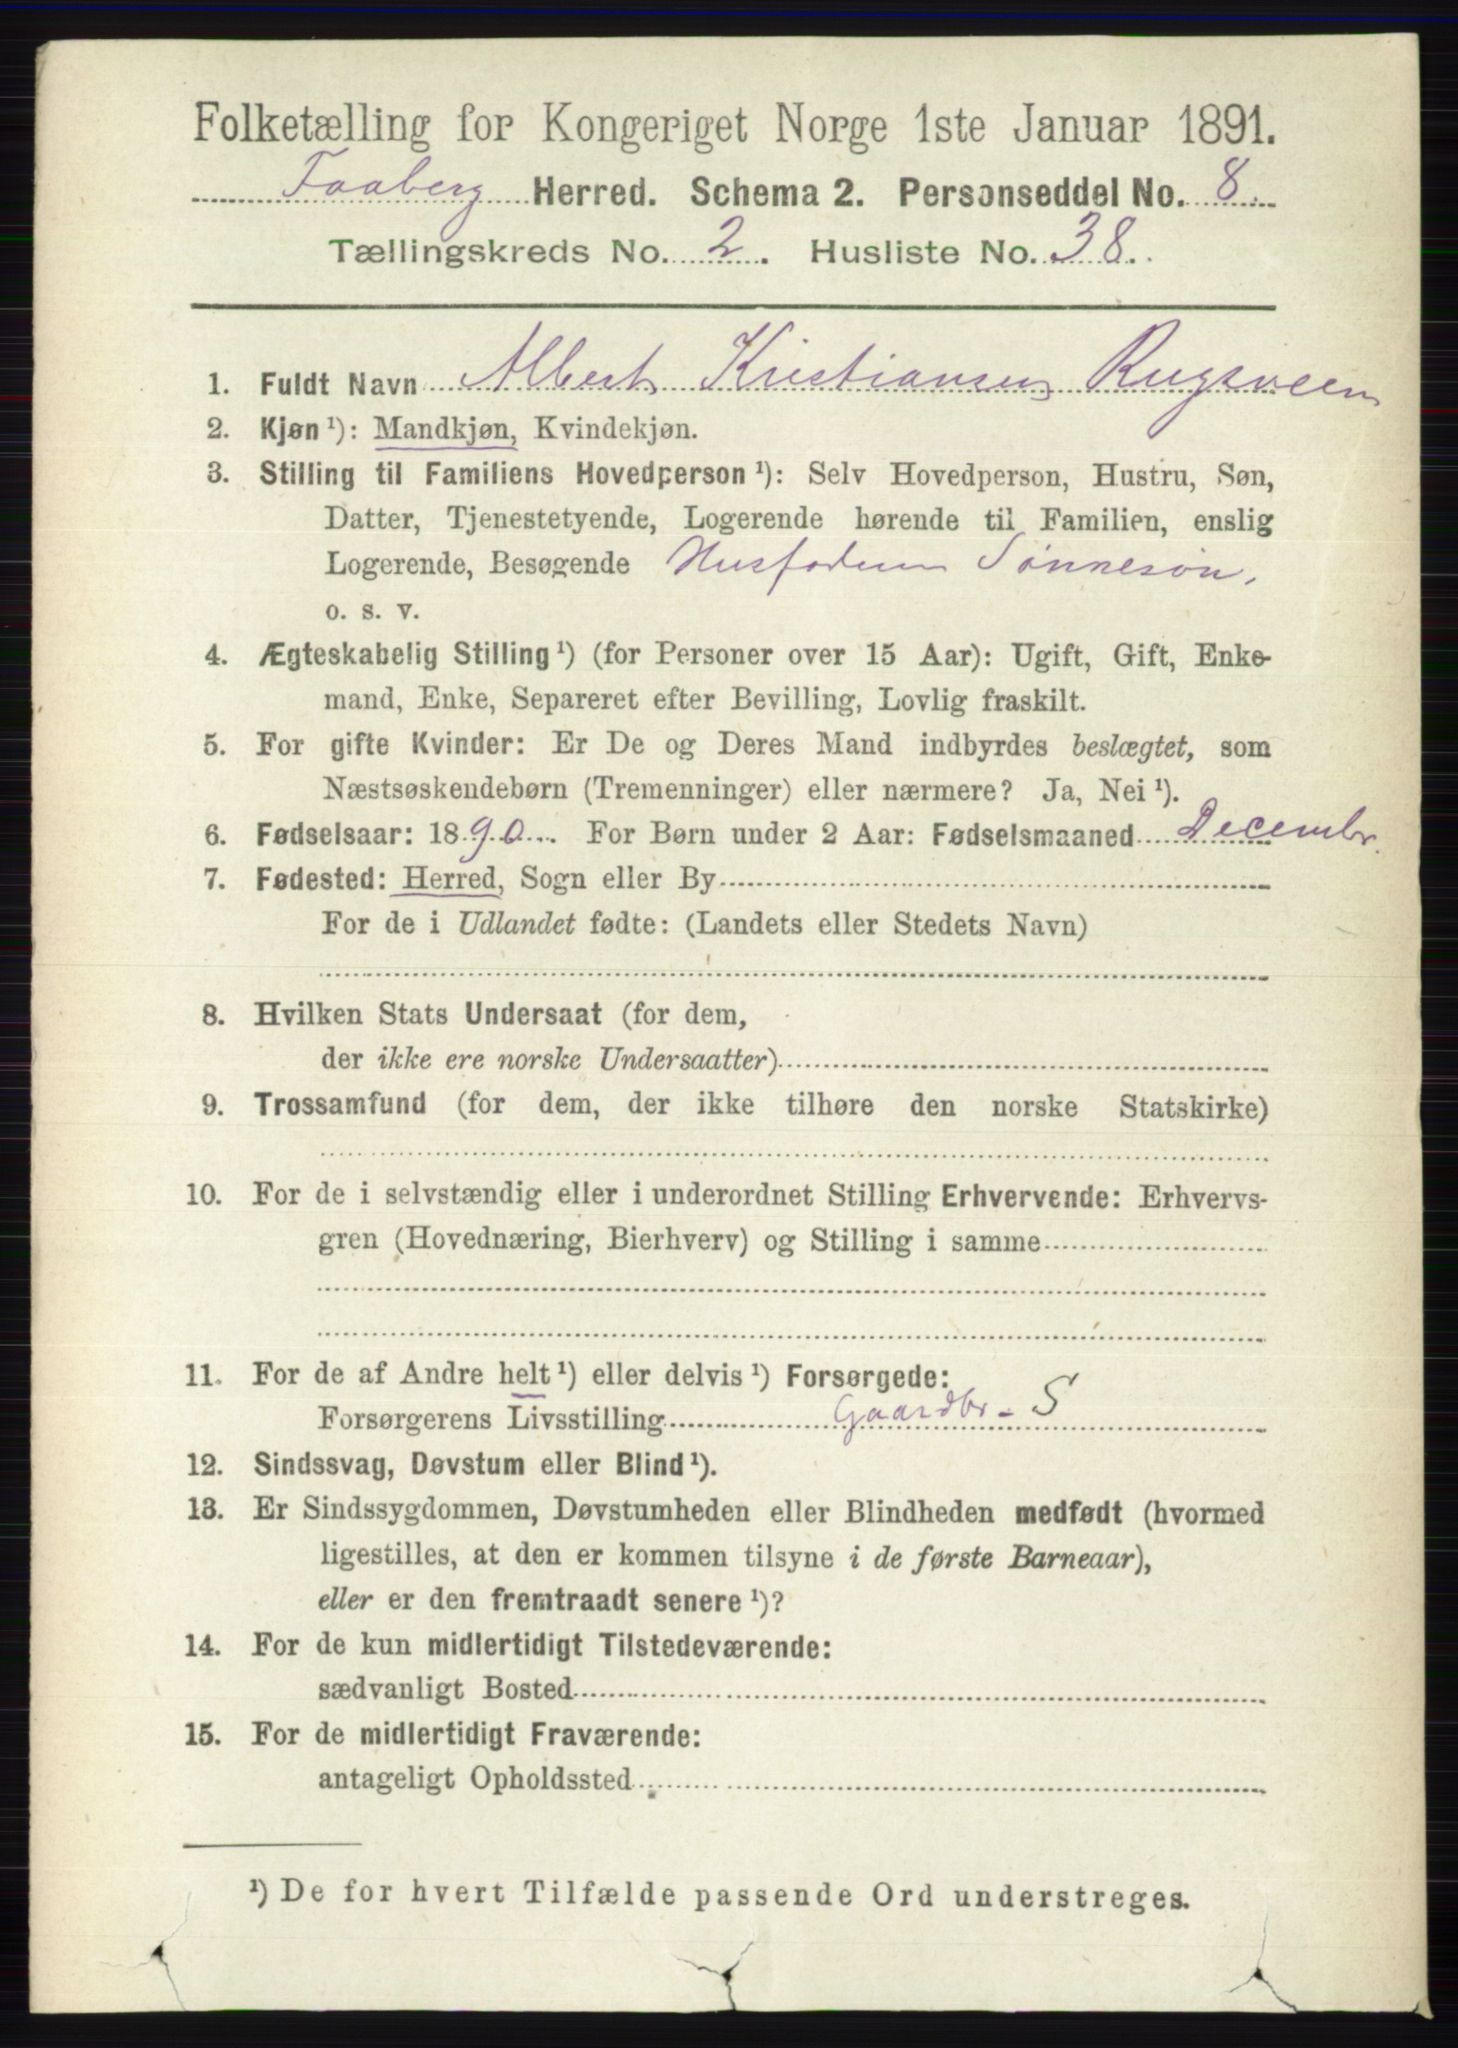 Folketælling for Kongeriget Norge 1ste Januar 1891.
Faaberg Herred. Schema 2. Personseddel No. 8.
Tællingskreds No. 2. Husliste No. 38.
1. Fuldt Navn Albert Kristiansen Rugsveen
2. Kjøn ¹): Mandkjøn, Kvindekjøn.
3. Stilling til Familiens Hovedperson ¹): Selv Hovedperson, Hustru, Søn,
Datter, Tjenestetyende, Logerende hørende til Familien, enslig
Logerende, Besøgende Husfaderens Sønnesøn.
o. s. v.
4. Ægteskabelig Stilling ¹) (for Personer over 15 Aar): Ugift, Gift, Enke-
mand, Enke, Separeret efter Bevilling, Lovlig fraskilt.
5. For gifte Kvinder: Er De og Deres Mand indbyrdes beslægtet, som
Næstsøskendebørn (Tremenninger) eller nærmere? Ja, Nei ¹).
6. Fødselsaar: 1890. For Børn under 2 Aar: Fødselsmaaned Decembr.
7. Fødested: Herred, Sogn eller By
For de i Udlandet fødte: (Landets eller Stedets Navn)
8. Hvilken Stats Undersaat (for dem,
der ikke ere norske Undersaatter)
9. Trossamfund (for dem, der ikke tilhøre den norske Statskirke)
10. For de i selvstændig eller i underordnet Stilling Erhvervende: Erhvervs-
gren (Hovednæring, Bierhverv) og Stilling i samme
11. For de af Andre helt ¹) eller delvis ¹) Forsørgede:
Forsørgerens Livsstilling Gaardbr - S
12. Sindssvag, Døvstum eller Blind ¹).
13. Er Sindssygdommen, Døvstumheden eller Blindheden medfødt (hvormed
ligestilles, at den er kommen tilsyne i de første Barneaar),
eller er den fremtraadt senere ¹)?
14. For de kun midlertidigt Tilstedeværende:
sædvanligt Bosted
15. For de midlertidigt Fraværende:
antageligt Opholdssted
¹) De for hvert Tilfælde passende Ord understreges.